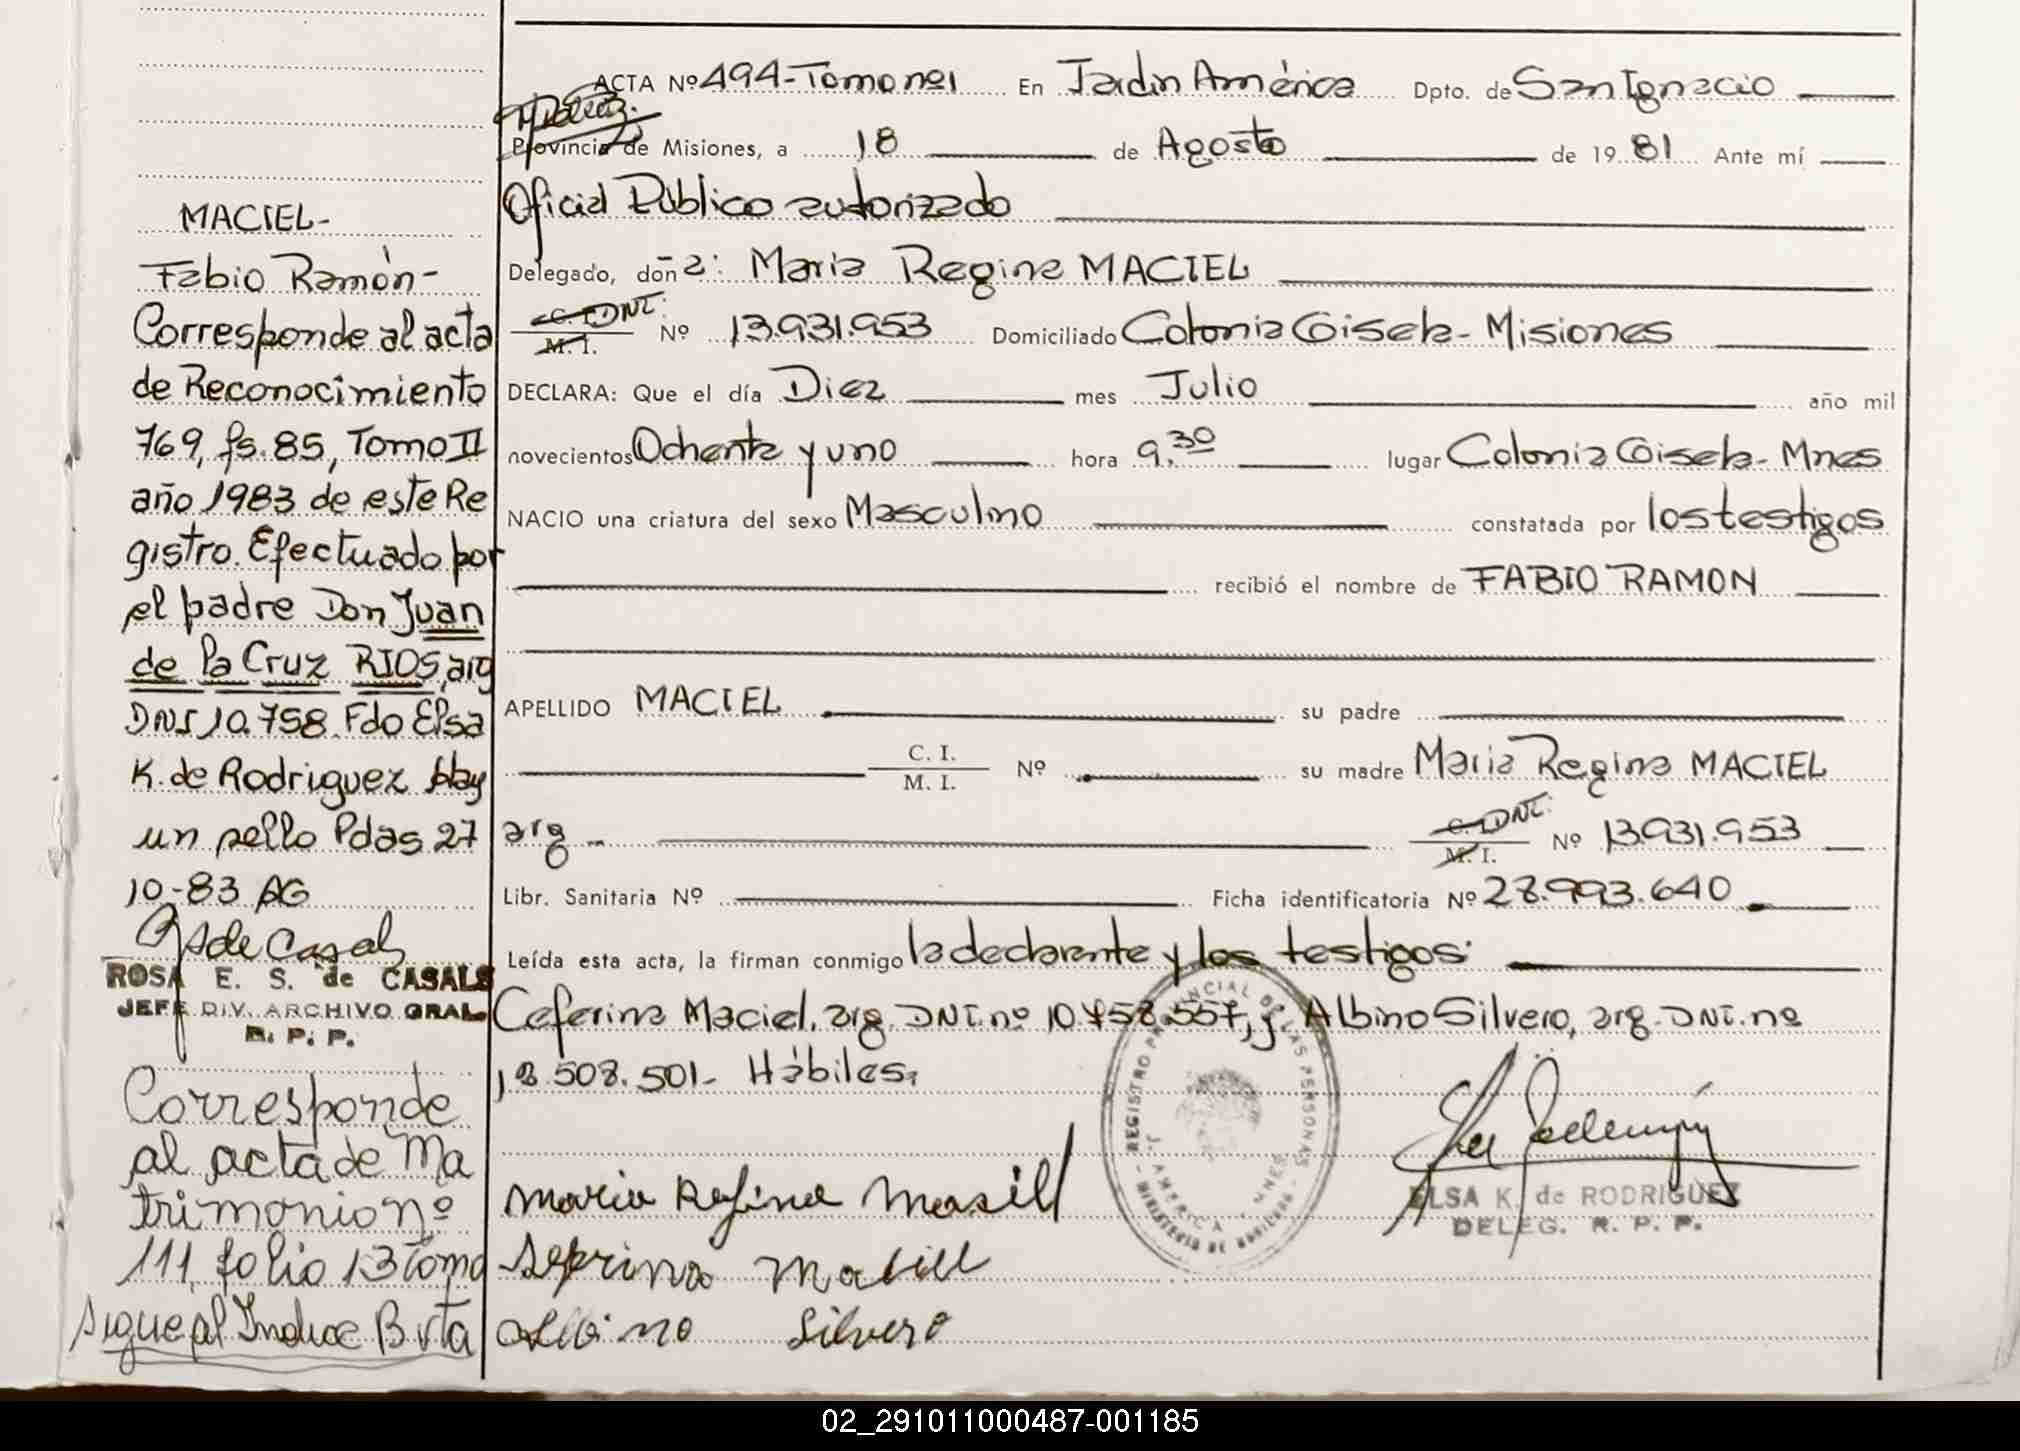 MACIEL-
Fabio Ramón-
Corresponde al acta
de Reconocimiento
769, fs. 85, Tomo II
año 1983 de este Re
gistro. Efectuado por
el padre Don Juan
de la Cruz RIOS, arg
DNI 10.758. Fdo Elsa
K. de Rodriguez Hay
un sello Pdas 27
10-83 AG
de Casals
ROSA E. S. de CASALS
JEFE DIV. ARCHIVO GRAL.
R. P. P.
Corresponde
al acta de Ma
trimonio nº
111, folio 13 Tomo
sigue al Indice Bvta
ACTA Nº 494-Tomo nº1 En Jardin América Dpto. de San Ignacio
Provincia de Misiones, a 18 de Agosto de 1981 Ante mí
Oficial Público autorizado
Delegado, doña: Maria Regina MACIEL
C. I. DNI. M. I. Nº 13.931.953 Domiciliado Colonia Gisela- Misiones
DECLARA: Que el día Diez mes Julio año mil
novecientos Ochenta y uno hora 9,30 lugar Colonia Gisela- Mnes
NACIO una criatura del sexo Masculino constatada por los testigos
recibió el nombre de FABIO RAMON
APELLIDO MACIEL su padre
C. I. M. I. Nº su madre Maria Regina MACIEL
arg C. I. DNI. M. I. Nº 13.931.953
Libr. Sanitaria Nº Ficha identificatoria Nº 28.993.640
Leída esta acta, la firman conmigo la declarante y los testigos:
Ceferina Maciel, arg. DNI. nº 10.758.557, y Albino Silvero, arg. DNI. nº
508.501- Hábiles.
Maria Regina Masill
Seprina Maciel
Albino Silvero
REGISTRO PROVINCIAL DE LAS PERSONAS
J. AMERICA - MNES
MINISTERIO DE GOBIERNO
ELSA K. de RODRIGUEZ
DELEG. R. P. P.
02_291011000487-001185